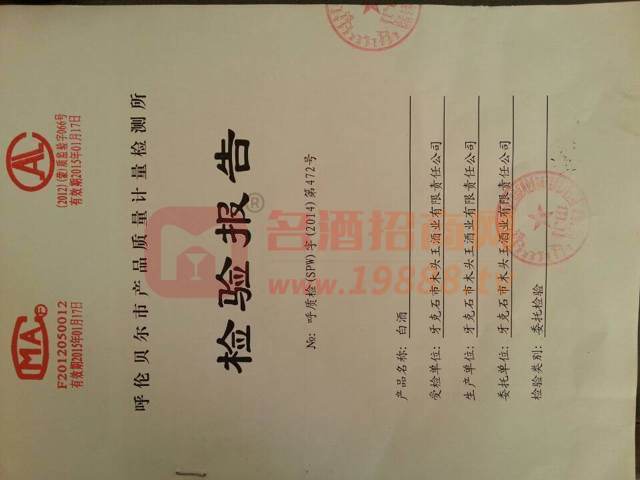 CMA
F2012050012
有效期2015年01月17日
CAL
(2012)(蒙)质监验字066号
有效期2015年01月17日
呼伦贝尔市产品质量计量检测所
检验报告
№: 呼质检(SPW)字(2014)第472号
产品名称: 白酒
受检单位: 牙克石市木头王酒业有限责任公司
生产单位: 牙克石市木头王酒业有限责任公司
委托单位: 牙克石市木头王酒业有限责任公司
检验类别: 委托检验
名酒招商网®
www.19888.tv